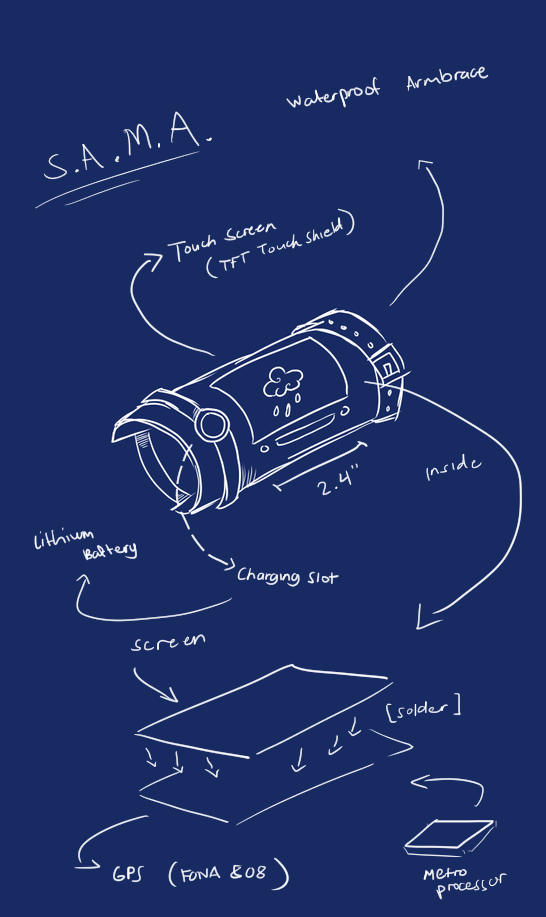 Waterproof Armbrace
S.A.M.A.
Touch Screen
(TFT Touch Shield)
2.4"
Inside
Lithium
Battery
Charging Slot
Screen
[solder]
GPS (FONA 808)
Metro
processor